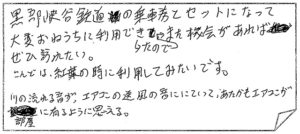 黒部峡谷鉄道の乗車券とセットになって
大変おねうちに利用できましたのでまた機会があれば
ぜひ訪れたい。
こんどは、紅葉の時に利用してみたいです。
川の流れる音が、エアコンの送風の音ににていて、あたかもエアコンが
部屋に有るように思える。